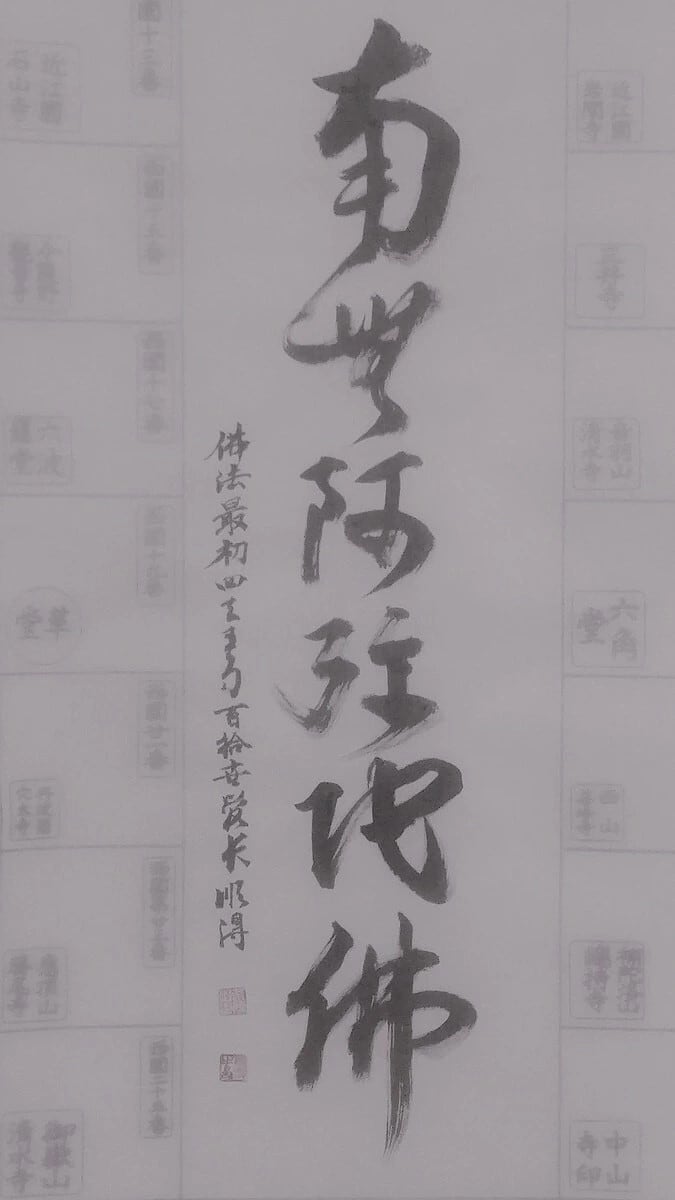 南無阿弥陀佛
佛法最初四天王寺百拾世管長順得
近江國
岩間寺
三井寺
音羽山
清水寺
六角
堂
西山
善峯寺
補陀洛山
總持寺
中山
寺印
西國十三番
近江國
石山寺
西國十五番
今熊野
觀音寺
西國十七番
六波
羅堂
西國十九番
革
堂
西國廿一番
丹波國
穴太寺
西國第廿三番
應頂山
勝尾寺
西國二十五番
御嶽山
清水寺